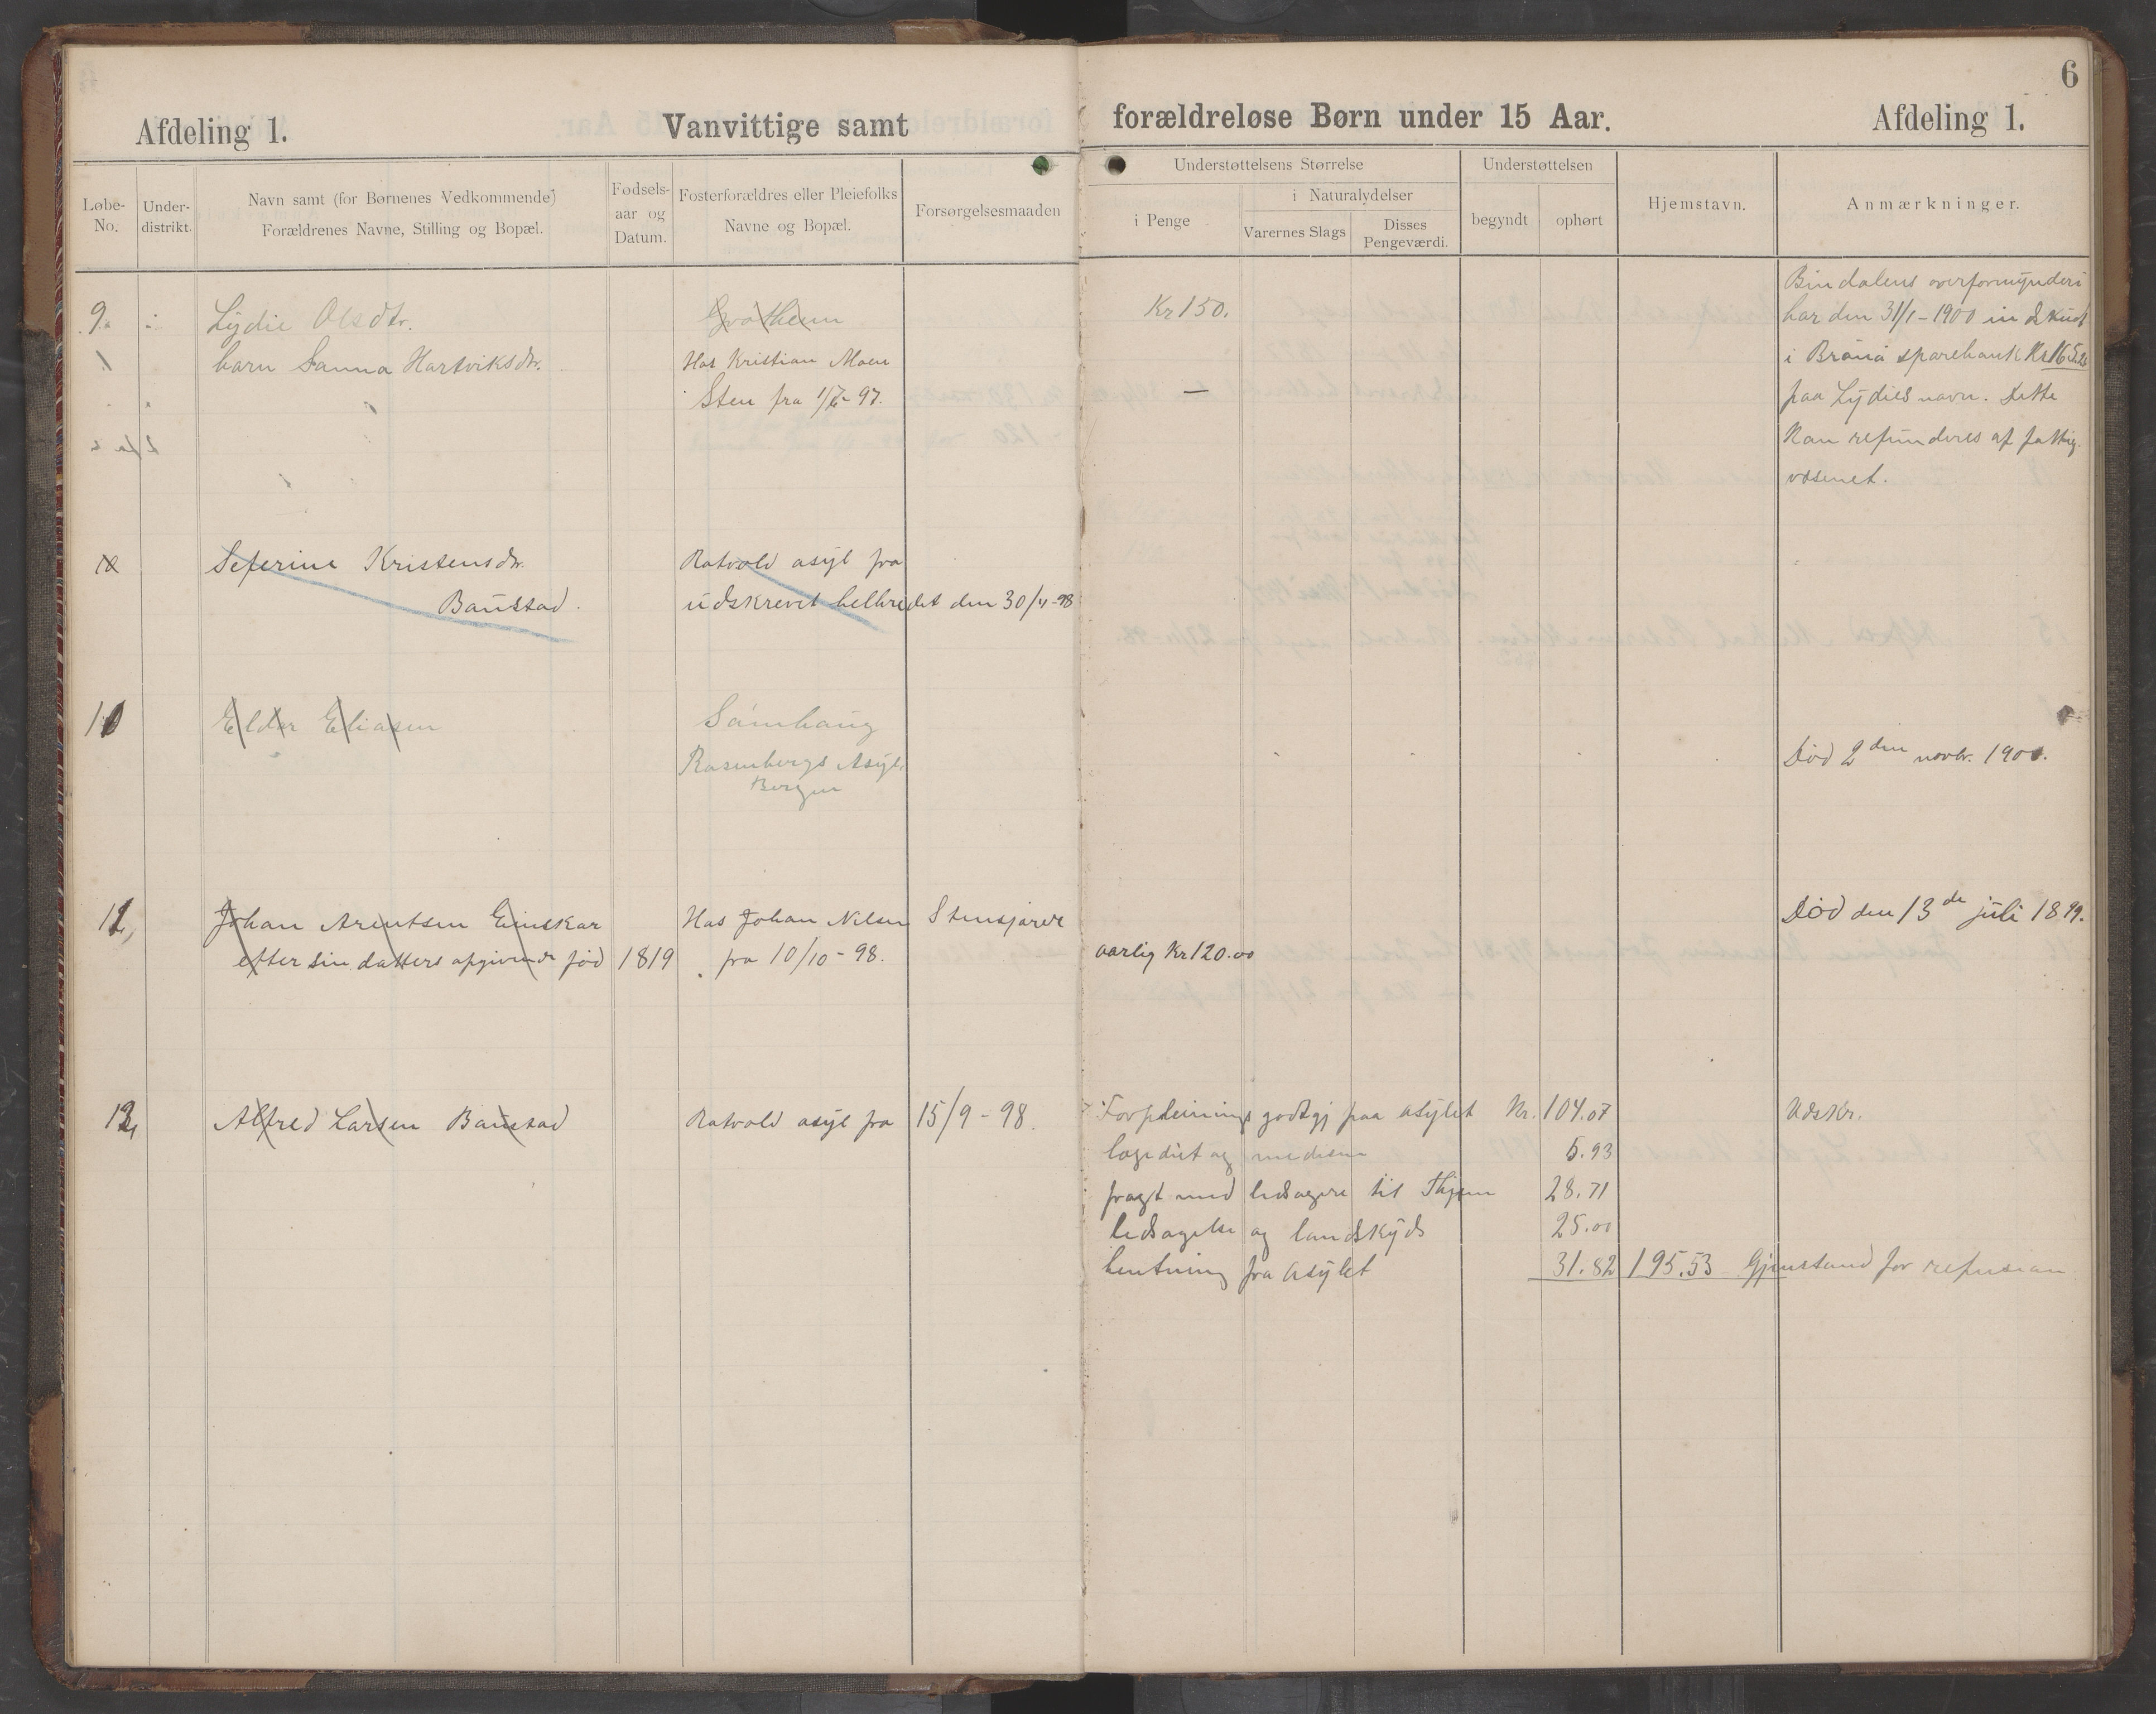 6
Afdeling 1.
Vanvittige samt
forældreløse Børn under 15 Aar.
Afdeling 1.
Løbe-No.
Under-distrikt.
Navn samt (for Børnenes Vedkommende)
Forældrenes Navne, Stilling og Bopæl.
Fødsels-aar og Datum.
Fosterforældres eller Pleiefolks
Navne og Bopæl.
Forsørgelsesmaaden
Understøttelsens Størrelse
i Penge
i Naturalydelser
Varernes Slags
Disses Pengeværdi.
Understøttelsen
begyndt
ophørt
Hjemstavn.
Anmærkninger.
9.
Lydie Olsdtr.
barn Sanna Hartviksdtr.
Hos Kristian Moen
Sten fra
Kr 150.
—
Bindalens overformynderi
har den 31/1-1900 indskudt
i Brønø sparebank Kr
paa Lydies navn. Dette
kan refunderes af fattig-
væsenet.
Seferine Kristensdtr.
Baustad.
Rotvold asyl fra
udskrevet helbredet den 30/4-98
Eliasen
Rosenbergs Asyl.
Bergen
Død 2den novbr. 1900.
Johan Arentsen
efter sin datters opgivende fød
1819
Hos Johan Nilsen
fra 10/10-98.
aarlig Kr 120.00
Død den 13de juli 1899.
Alfred Larsen Baustad
Rotvold asyl fra 15/9-98.
Forpleinings godtgj paa asylet Kr. 104.07
Udskr.
og medisin 5.93
fragt med ledsagere til Thjem 28.71
ledsagelse og landskyds 25.00
hentning fra asylet 31.82 195.53 Gjenstand for refusion